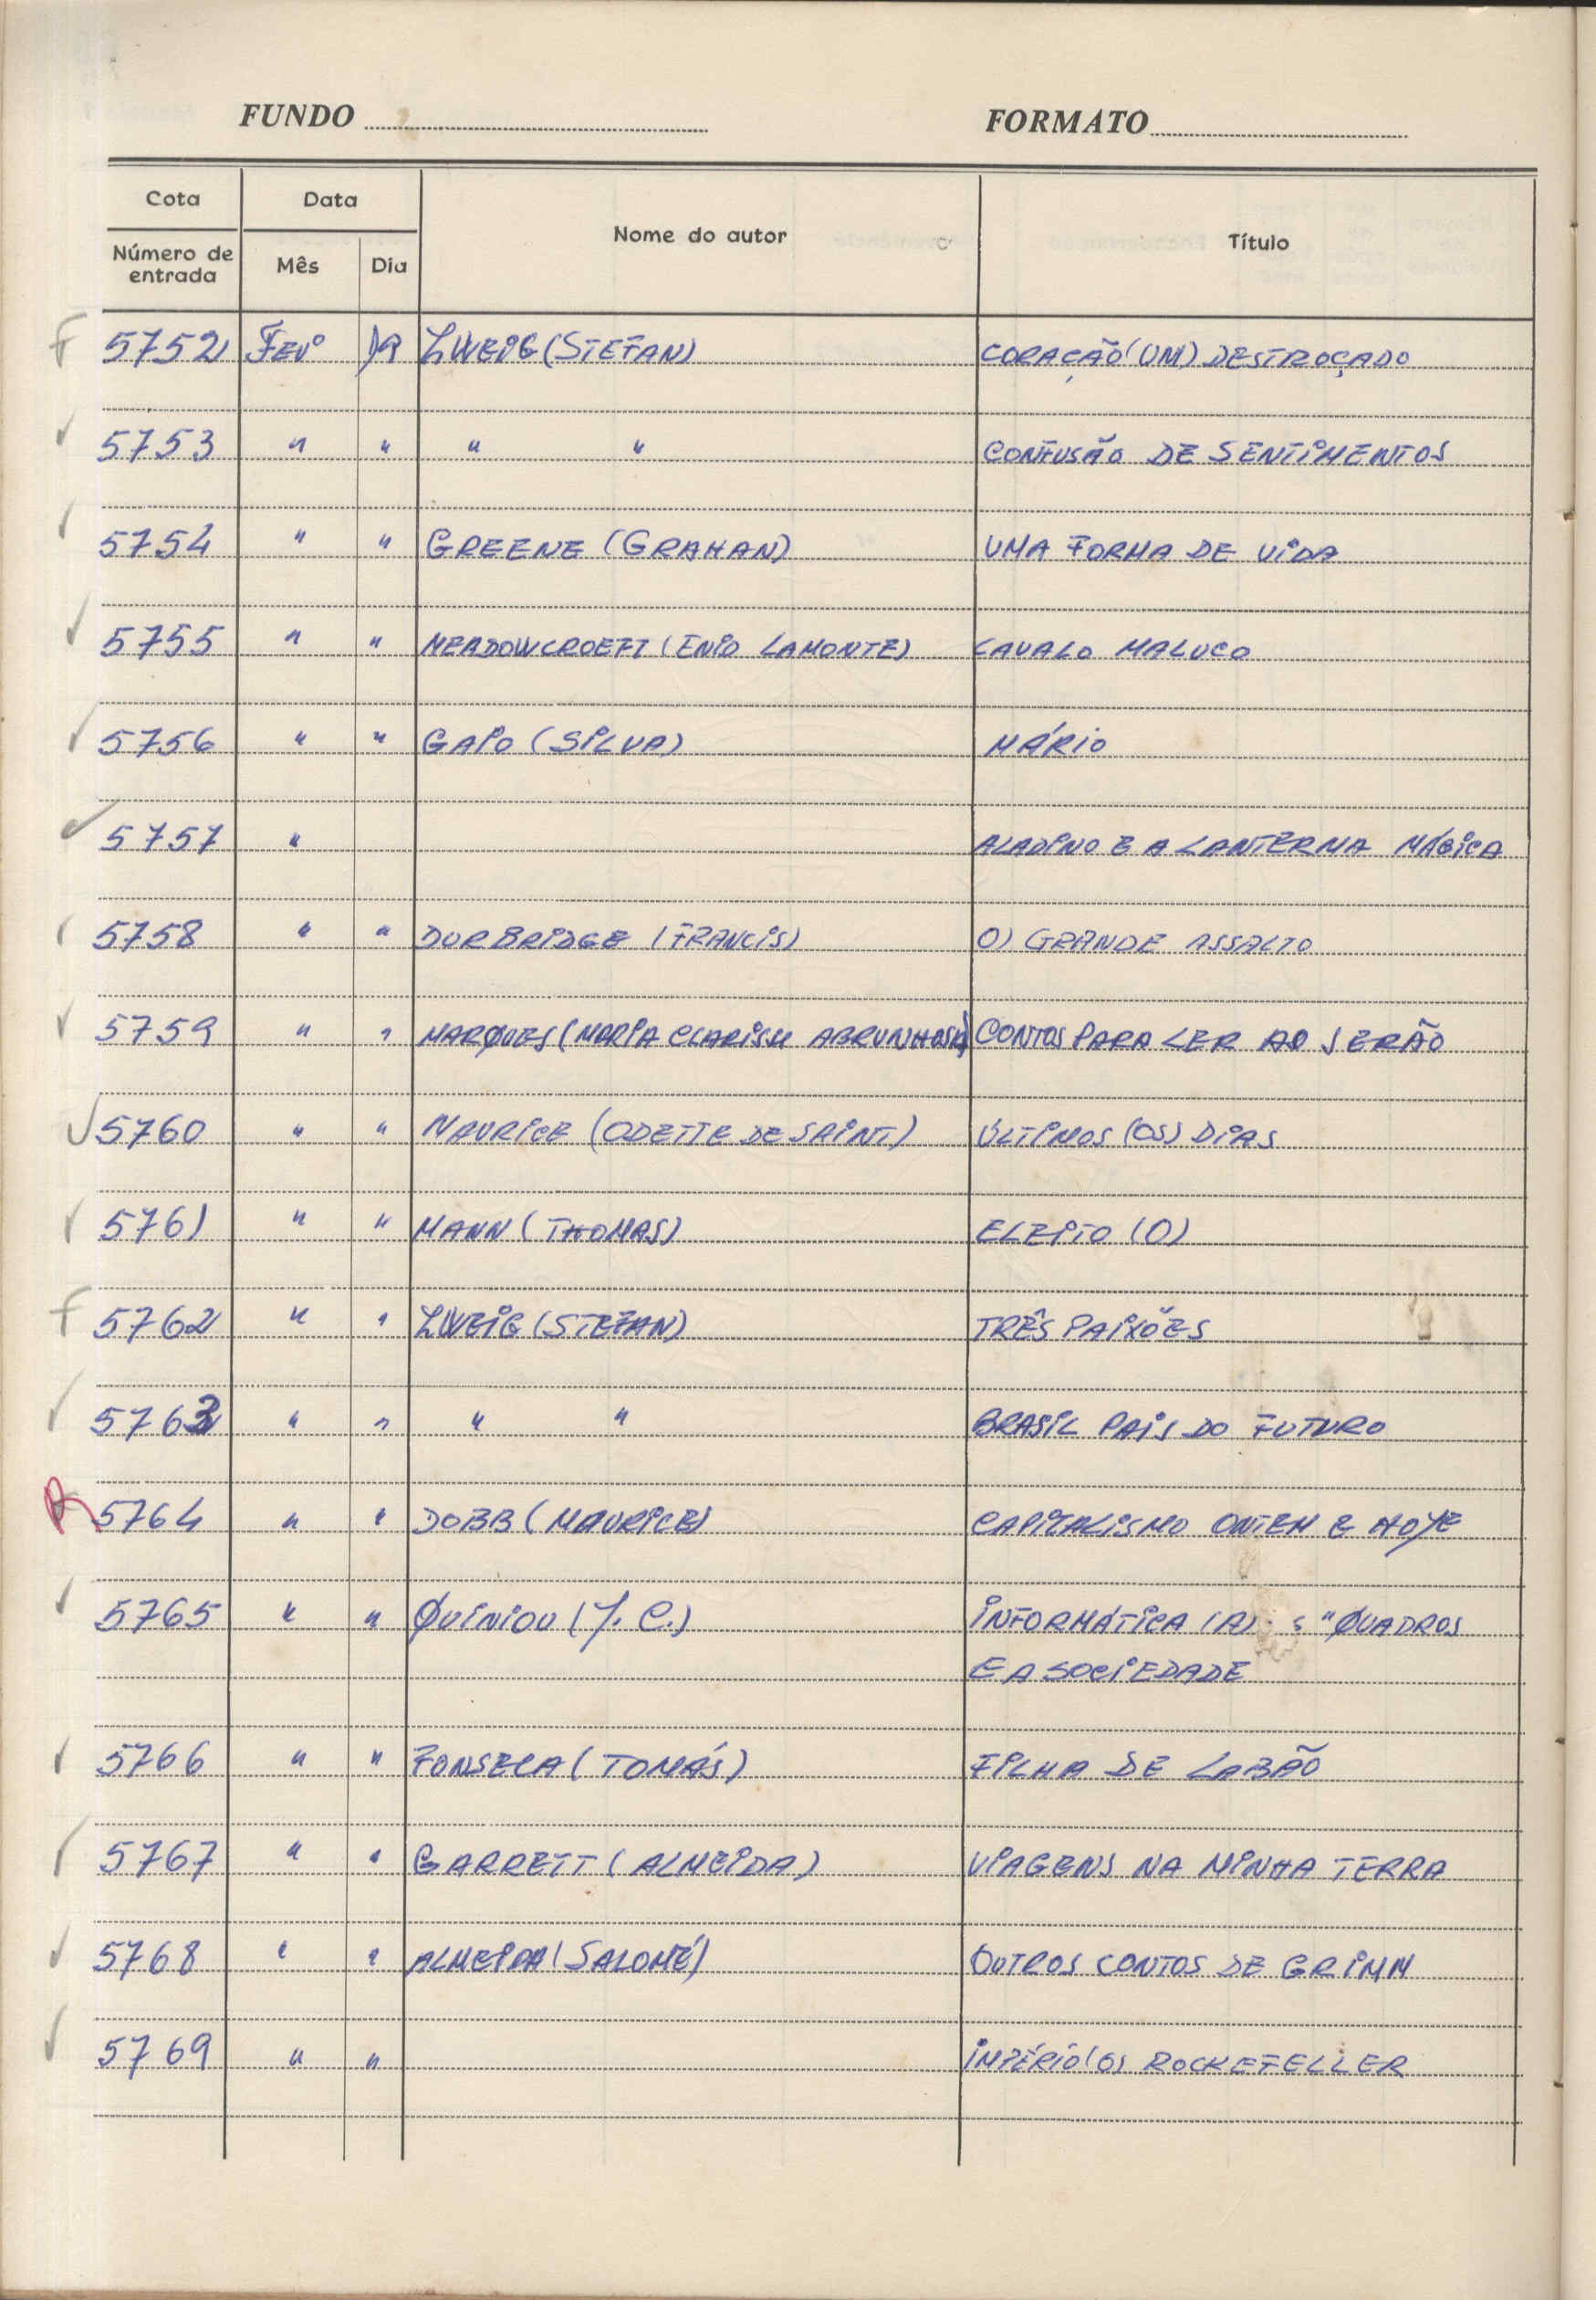 FUNDO FORMATO
Cota Data Nome do autor Título
Número de entrada Mês Dia
F 5752 Fevº 19 ZWEIG (STEFAN) CORAÇÃO (UM) DESTROÇADO
5753 " " " " CONFUSÃO DE SENTIMENTOS
5754 " " GREENE (GRAHAN) UMA FORMA DE VIDA
5755 " " MEADOWCROEFT (ENID LAMONTE) CAVALO MALUCO
5756 " " GAIO (SILVA) MÁRIO
5757 " ALADINO E A LANTERNA MÁGICA
5758 " " DURBRIDGE (FRANCIS) O) GRANDE ASSALTO
5759 " " MARQUES (MARIA CLARISSE ABRUNHOSA) CONTOS PARA LER AO SERÃO
5760 " " MAURICE (ODETTE DE SAINT) ÚLTIMOS (OS) DIAS
5761 " " MANN (THOMAS) ELEITO (O)
F 5762 " " ZWEIG (STEFAN) TRÊS PAIXÕES
5763 " " " " BRASIL PAIS DO FUTURO
R 5764 " " DOBB (MAURICE) CAPITALISMO ONTEM E HOJE
5765 " " QUINIOU (J. C.) INFORMÁTICA (A) : "QUADROS
E A SOCIEDADE
5766 " " FONSECA (TOMÁS) FILHA DE LABÃO
5767 " " GARRETT (ALMEIDA) VIAGENS NA MINHA TERRA
5768 " " ALMEIDA (SALOMÉ) OUTROS CONTOS DE GRIMM
5769 " " IMPÉRIO (O) ROCKEFELLER